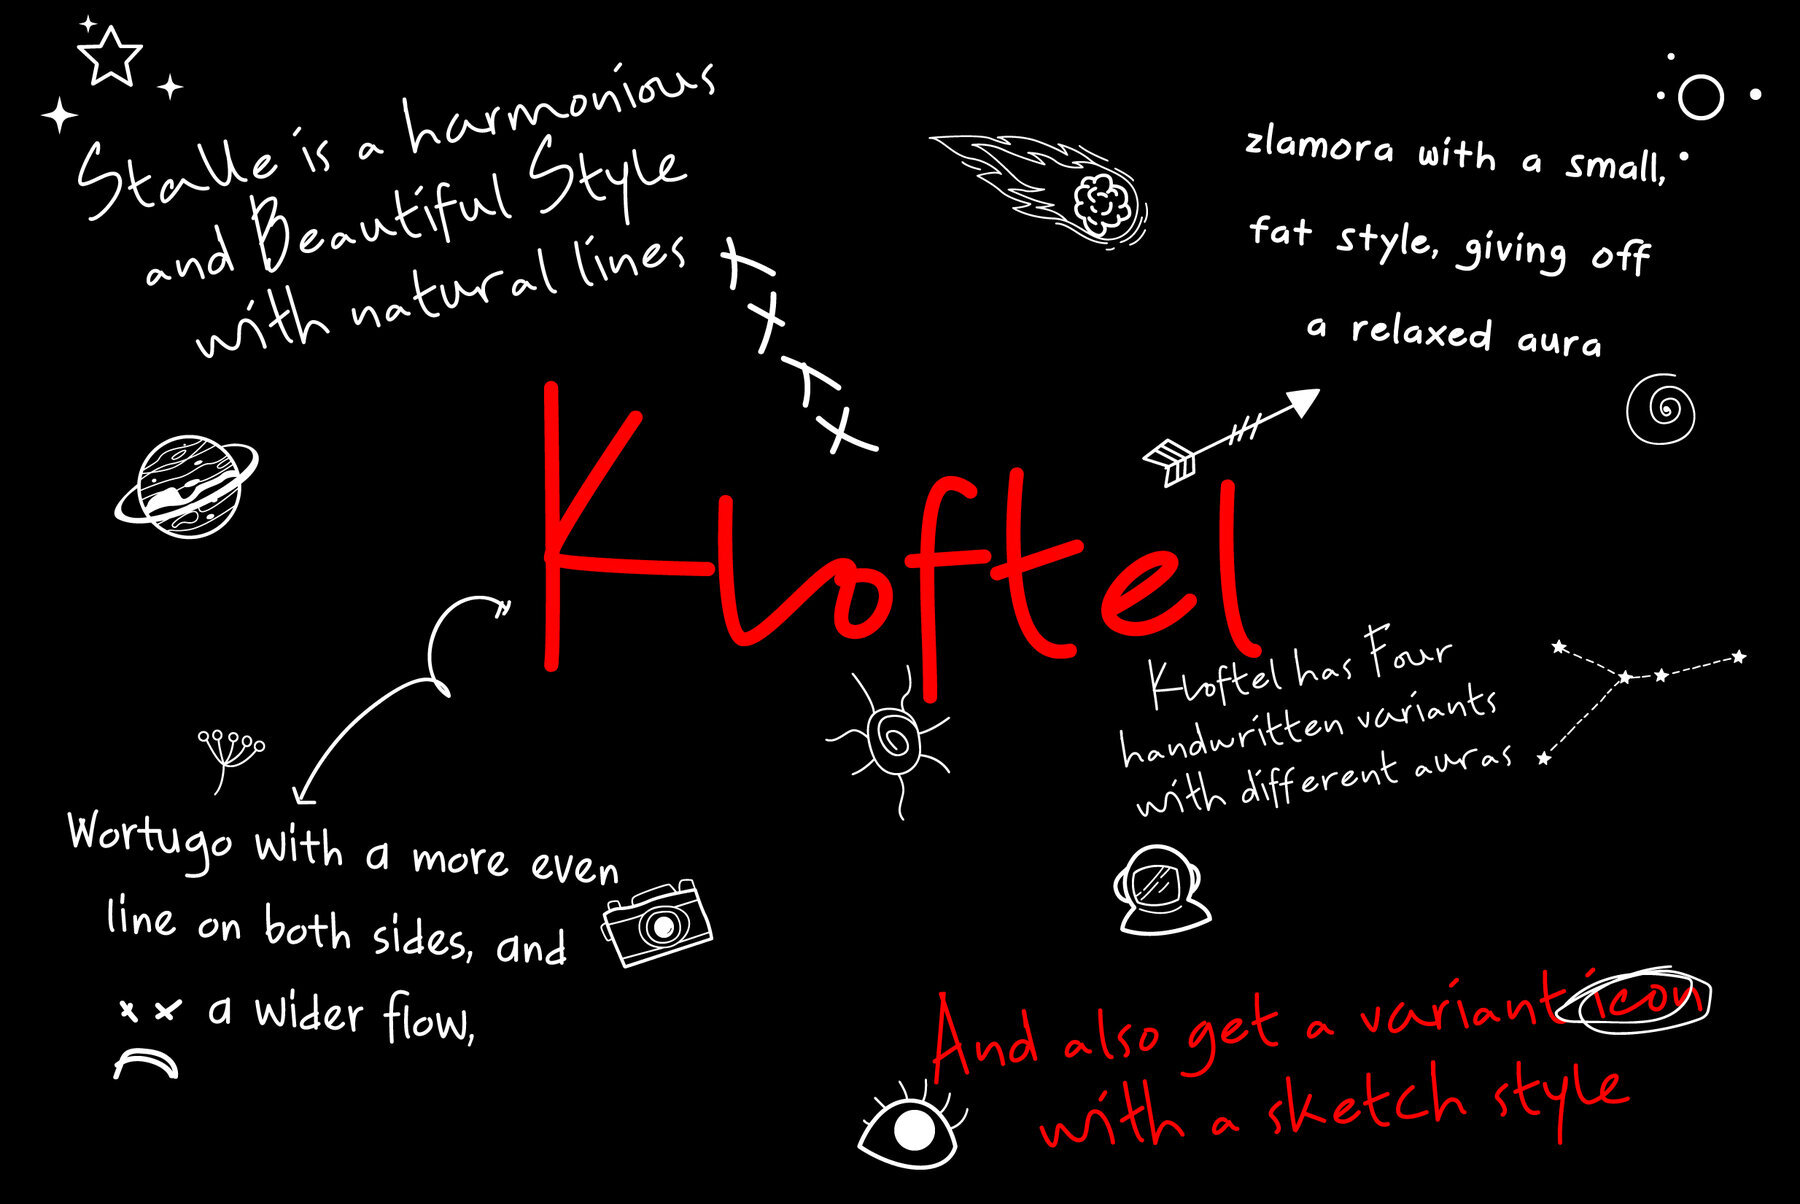 Stalle is a harmonious
and Beautiful Style
with natural lines
zlamora with a small,
fat style, giving off
a relaxed aura
Kloftel
Kloftel has Four
handwritten variants
with different auras
Wortugo with a more even
line on both sides, and
a wider flow,
And also get a variant icon
with a sketch style